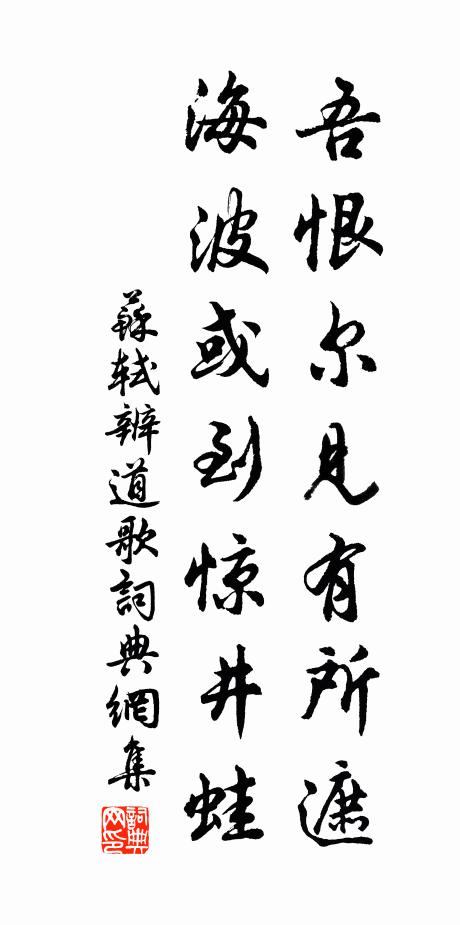 吾恨尔见有所遮
海波或到惊井蛙
蘇軾辨道歌詞典網集
詞典网印